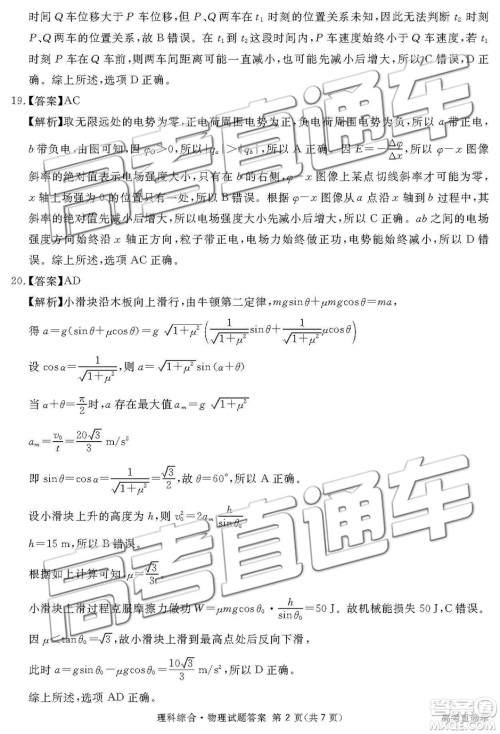 时间 Q 车位移大于 P 车位移,但 P、Q 两车在 t₁ 时刻的位置关系未知,因此无法判断 t₂ 时刻
P、Q 两车的位置关系,故 B 错误。在 t₁ 到 t₂ 这段时间内,P 车速度始终小于 Q 车速度,若 t₁
时刻 P 车在 Q 车前,则两车间距离可能一直减小,也可能先减小后增大,所以 C 错误,D 正
确。综上所述,选项 D 正确。
19.【答案】AC
【解析】取无限远处的电势为零,正电荷周围电势为正,负电荷周围电势为负,所以 a 带正电,
b 带负电,由图可知,因 φ_O>0,所以|q_a|>|q_b|,所以 A 正确。因 E=-Δφ/Δx,所以 φ-x 图像
斜率的绝对值表示电场强度大小,只有在 b 的右侧,φ-x 图像上某点切线斜率才可能为零,
x 轴上场强为 0 的位置只有一处,所以 B 错误。根据 φ-x 图像从 a 点沿 x 轴到 b 过程中,其
斜率的绝对值先减小后增大,所以电场强度大小先减小后增大,所以 C 正确。ab 之间的电场
强度方向始终沿 x 轴正方向,粒子带正电,电场力始终做正功,电势能一直减小,所以 D 错
误。综上所述,选项 AC 正确。
20.【答案】AD
【解析】小滑块沿木板向上滑行,由牛顿第二定律,mgsinθ+μmgcosθ=ma,
得 a=g(sinθ+μcosθ)=g√(1+μ²)(1/√(1+μ²) sinθ+μ/√(1+μ²) cosθ)
设 cosα=1/√(1+μ²),则 a=g√(1+μ²)sin(α+θ)
当 α+θ=π/2时,a 存在最大值 a_m=g√(1+μ²)
a_m=v₀/t=20√3/3 m/s²
即 sinθ=cosα=1/√(1+μ²)=√3/2,故 θ=60°,所以 A 正确。
设小滑块上升的高度为 h,则 v₀²=2a_m h/sinθ₀
h=15 m,所以 B 错误。
根据如上计算可知 μ=√3/3,
小滑块上滑过程克服摩擦力做功 W=μmgcosθ₀·h/sinθ₀=50 J。故机械能损失 50 J,C 错误。
因 μ<tanθ₀=√3,故小滑块上滑到最高点处后反向下滑,
此时 a=gsinθ₀-μgcosθ₀=10√3/3 m/s²,所以 D 正确。
综上所述,选项 AD 正确。
理科综合·物理试题答案 第 2 页(共 7 页)
高考直通车
高考直通车